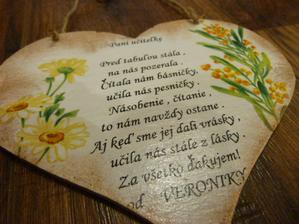 Pani učiteľky
Pred tabuľou stála ,
na nás pozerala .
Čítala nám básničky,
učila nás pesničky ,
Násobenie , čítanie ,
to nám navždy ostane .
Aj keď sme jej dali vrásky ,
učila nás stále z lásky .
Za všetko ďakujem!
od VERONIKY